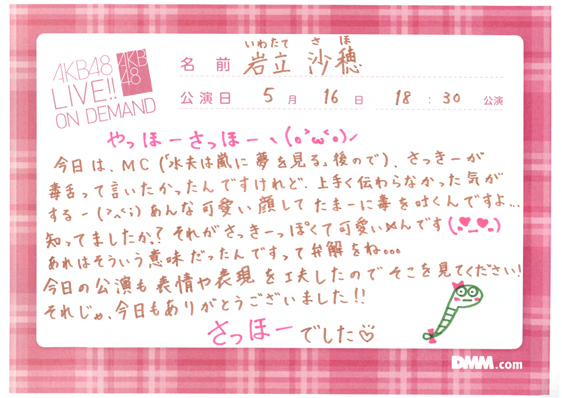 AKB48
LIVE!!
ON DEMAND
AKB
48
いわたて さほ
名前 岩立 沙穂
公演日 5月 16日 18:30 公演
やっほーさっほーヽ(o`ω´o)ノ
今日は、MC(「水夫は嵐に夢を見る」後ので)、さっきーが
毒舌って言いたかったんですけれど、上手く伝わらなかった気が
するー(>ㅅ<;)あんな可愛い顔してたまーに毒を吐くんですよ…
知ってましたか?それがさっきーっぽくて可愛いんです
あれはそういう意味だったんですって弁解をね…
今日の公演も表情や表現を工夫したのでそこを見てください!
それじゃ、今日もありがとうございました!!
さっほーでした♡
DMM.com